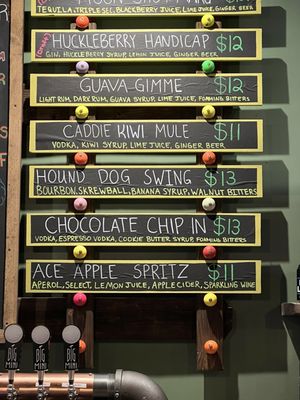 TEQUILA, TRIPLE SEC, BLACKBERRY JUICE, LIME JUICE, GINGER BEER
HUCKLEBERRY HANDICAP $12
GIN, HUCKLEBERRY SYRUP, LEMON JUICE, GINGER BEER
GUAVA-GIMME $12
LIGHT RUM, DARK RUM, GUAVA SYRUP, LIME JUICE, FOAMING BITTERS
CADDIE KIWI MULE $11
VODKA, KIWI SYRUP, LIME JUICE, GINGER BEER
HOUND DOG SWING $13
BOURBON, SKREWBALL, BANANA SYRUP, WALNUT BITTERS
CHOCOLATE CHIP IN $13
VODKA, ESPRESSO VODKA, COOKIE BUTTER SYRUP, FOAMING BITTERS
ACE APPLE SPRITZ $11
APEROL, SELECT, LEMON JUICE, APPLE CIDER, SPARKLING WINE
BIG MINI
BIG MINI
BIG MINI